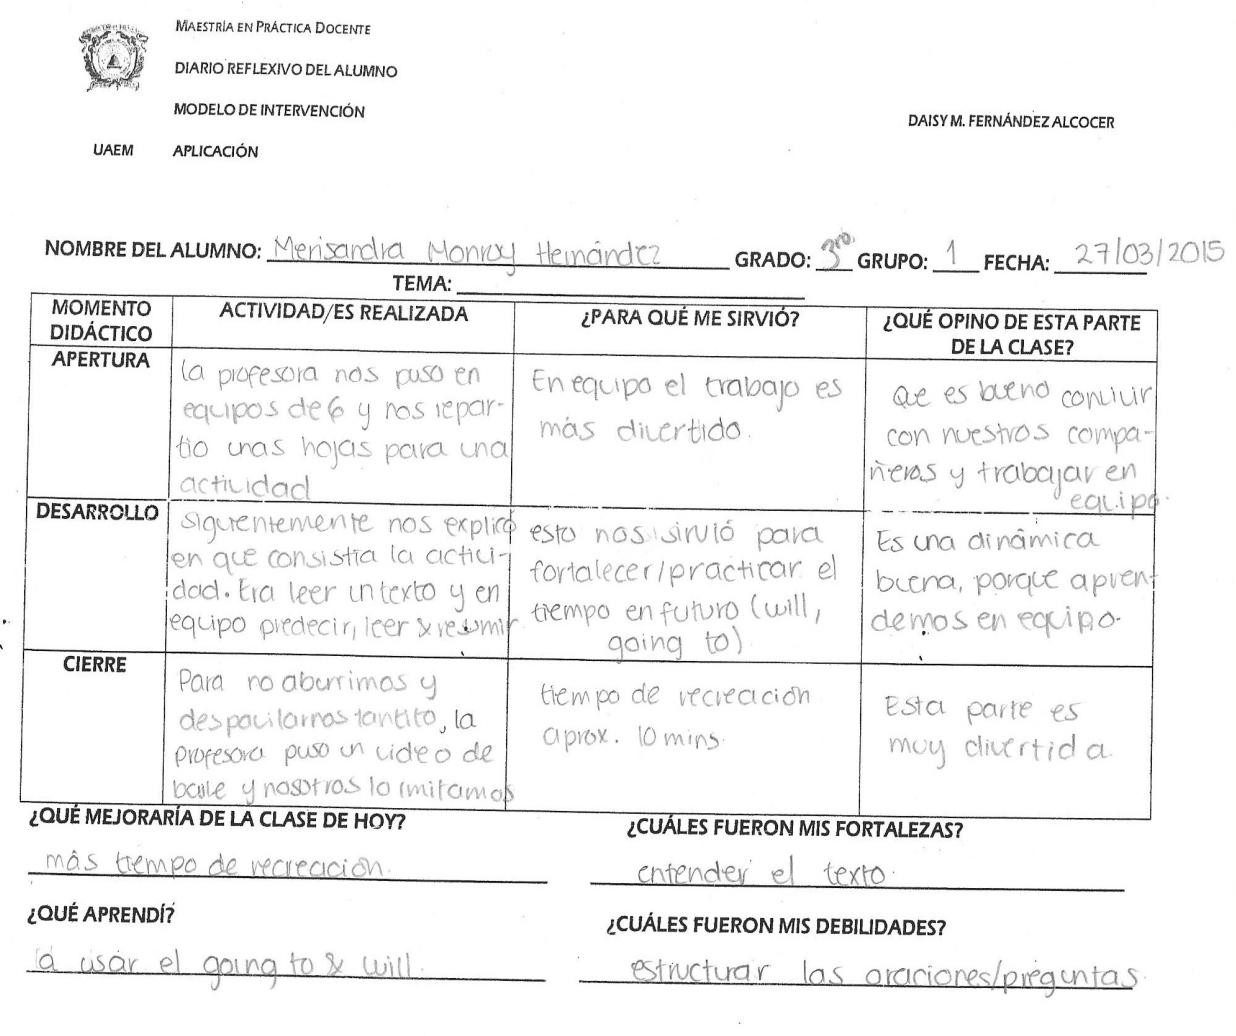 MAESTRÍA EN PRÁCTICA DOCENTE
DIARIO REFLEXIVO DEL ALUMNO
MODELO DE INTERVENCIÓN
DAISY M. FERNÁNDEZ ALCOCER
UAEM APLICACIÓN
NOMBRE DEL ALUMNO: Merisandra Monroy Hernández GRADO: 3ro. GRUPO: 1 FECHA: 27/03/2015
TEMA:
MOMENTO
DIDÁCTICO
ACTIVIDAD/ES REALIZADA
¿PARA QUÉ ME SIRVIÓ?
¿QUÉ OPINO DE ESTA PARTE
DE LA CLASE?
APERTURA
la profesora nos puso en
equipos de 6 y nos repar-
tio unas hojas para una
actividad
En equipo el trabajo es
más divertido.
Que es bueno convivir
con nuestros compa-
ñeros y trabajar en
equipo.
DESARROLLO
siguentemente nos explicó
en que consistia la activi-
dad. Era leer un texto y en
equipo predecir, leer & resumir
esto nos sirvió para
fortalecer/practicar el
tiempo en futuro (will,
going to)
Es una dinâmica
buena, porque apren-
demos en equipo.
CIERRE
Para no aburrirnos y
despavilarnos tantito, la
profesora puso un video de
baile y nosotros lo imitamos
tiempo de recreación
aprox. 10 mins.
Esta parte es
muy divertida.
¿QUÉ MEJORARÍA DE LA CLASE DE HOY?
más tiempo de recreación.
¿CUÁLES FUERON MIS FORTALEZAS?
entender el texto.
¿QUÉ APRENDÍ?
a usar el going to & will.
¿CUÁLES FUERON MIS DEBILIDADES?
estructurar las oraciones/preguntas.